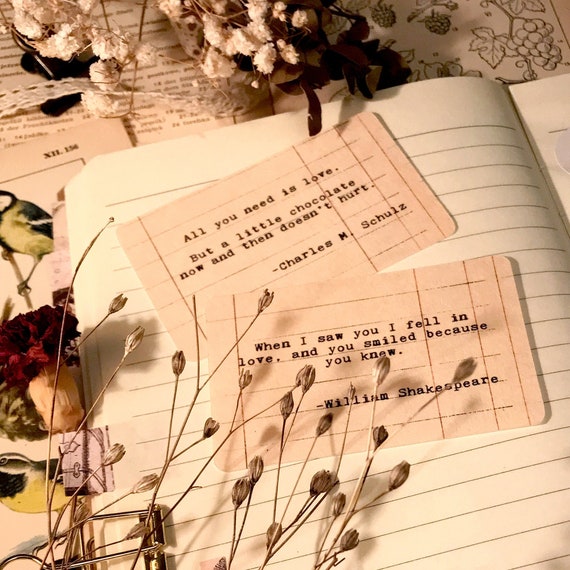 XII. 156
All you need is love.
But a little chocolate
now and then doesn't hurt.
-Charles M. Schulz
When I saw you I fell in
love, and you smiled because
you knew.
-William Shakespeare